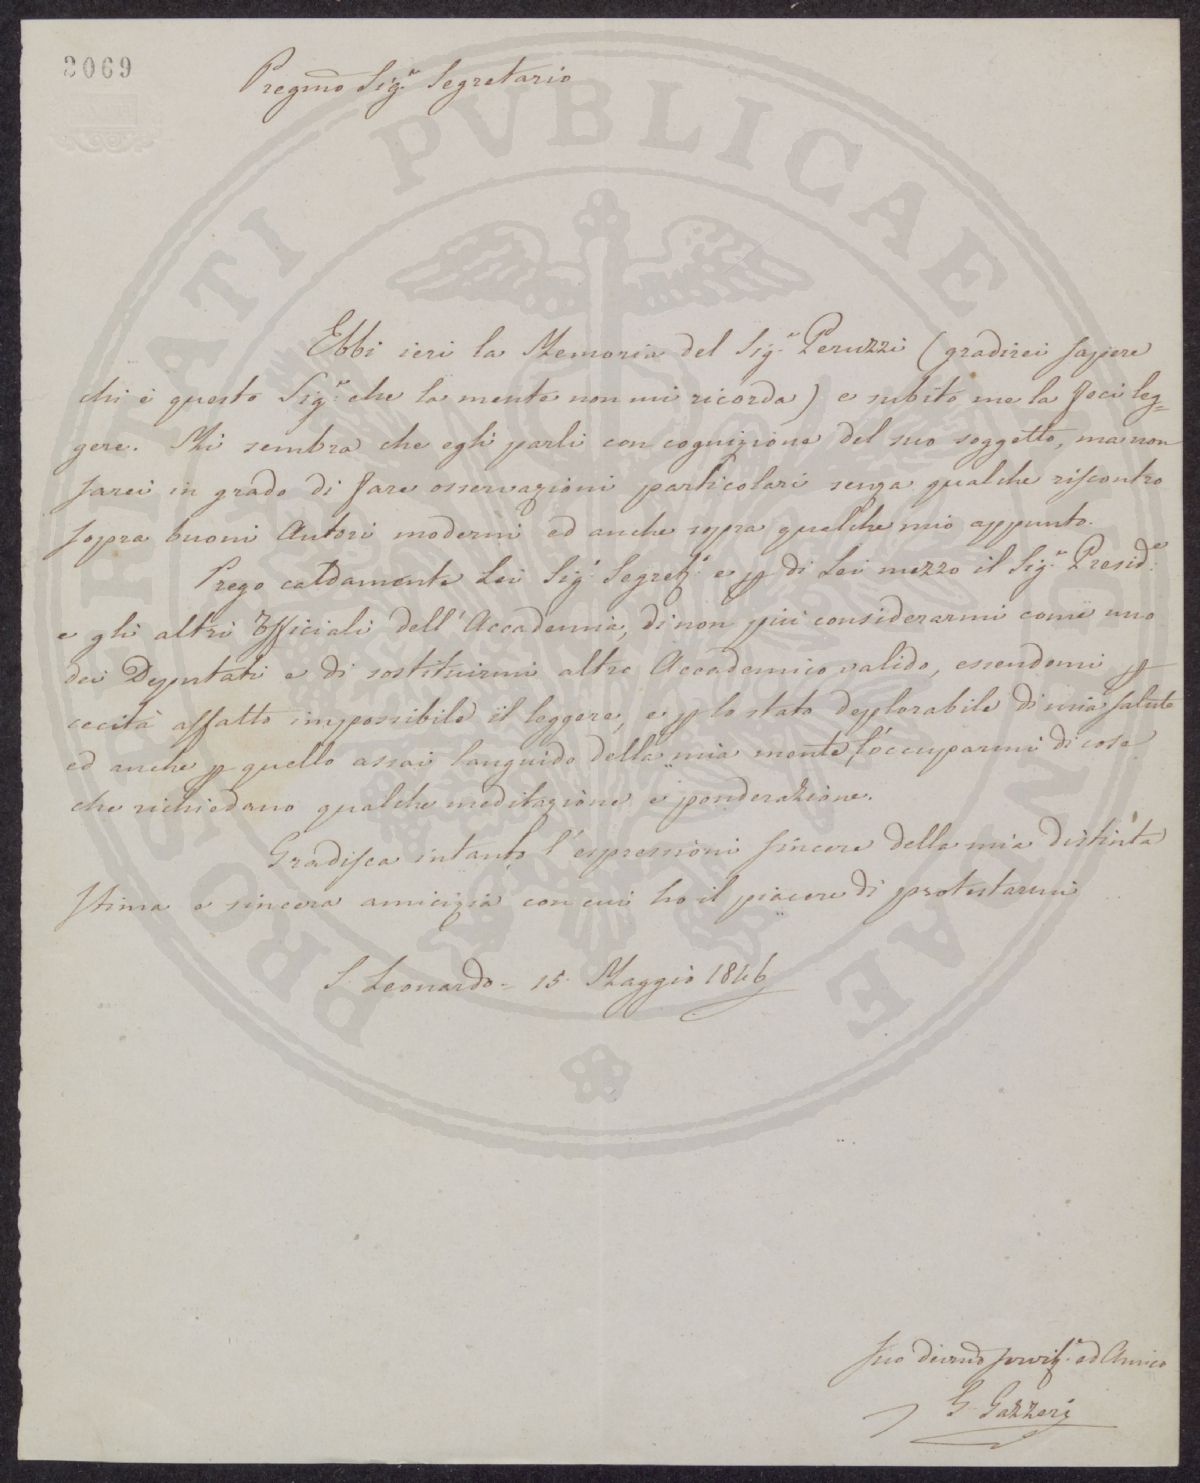 2069
Pregmo Sigr. Segretario
PROSPERITATI PVBLICAE AUGENDAE
Ebbi ieri la Memoria del Sigr. Peruzzi (gradirei sapere
chi è questo Sigr. che la mente non mi ricorda) e subito me la feci leg=
gere. Mi sembra che egli parli con cognizione del suo soggetto, ma non
sarei in grado di fare osservazioni particolari senza qualche riscontro
sopra buoni Autori moderni ed anche sopra qualche mio appunto.
Prego caldamente Lei Sigr. Segreto. e p di Lei mezzo il Sigr. Preside.
e gli altri Ufficiali dell'Accademia, di non più considerarmi come uno
dei Deputati e di sostituirmi altro Accademico valido, essendomi p
cecità affatto impossibile il leggere, e p lo stato deplorabile di mia salute
ed anche p quello assai languido della mia mente, l'occuparmi di cose
che richiedano qualche meditazione e ponderazione.
Gradisca intanto l'espressioni sincere della mia distinta
stima e sincera amicizia con cui ho il piacere di protestarmi
S. Leonardo - 15 Maggio 1846
Suo devmo servite. ed Amico
G. Gazzeri